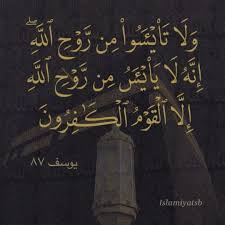 وَلَا تَا۟يْـَٔسُوا۟ مِن رَّوْحِ ٱللَّهِ ۖ
إِنَّهُۥ لَا يَا۟يْـَٔسُ مِن رَّوْحِ ٱللَّهِ
إِلَّا ٱلْقَوْمُ ٱلْكَٰفِرُونَ
يوسف ٨٧
Islamiyatsb